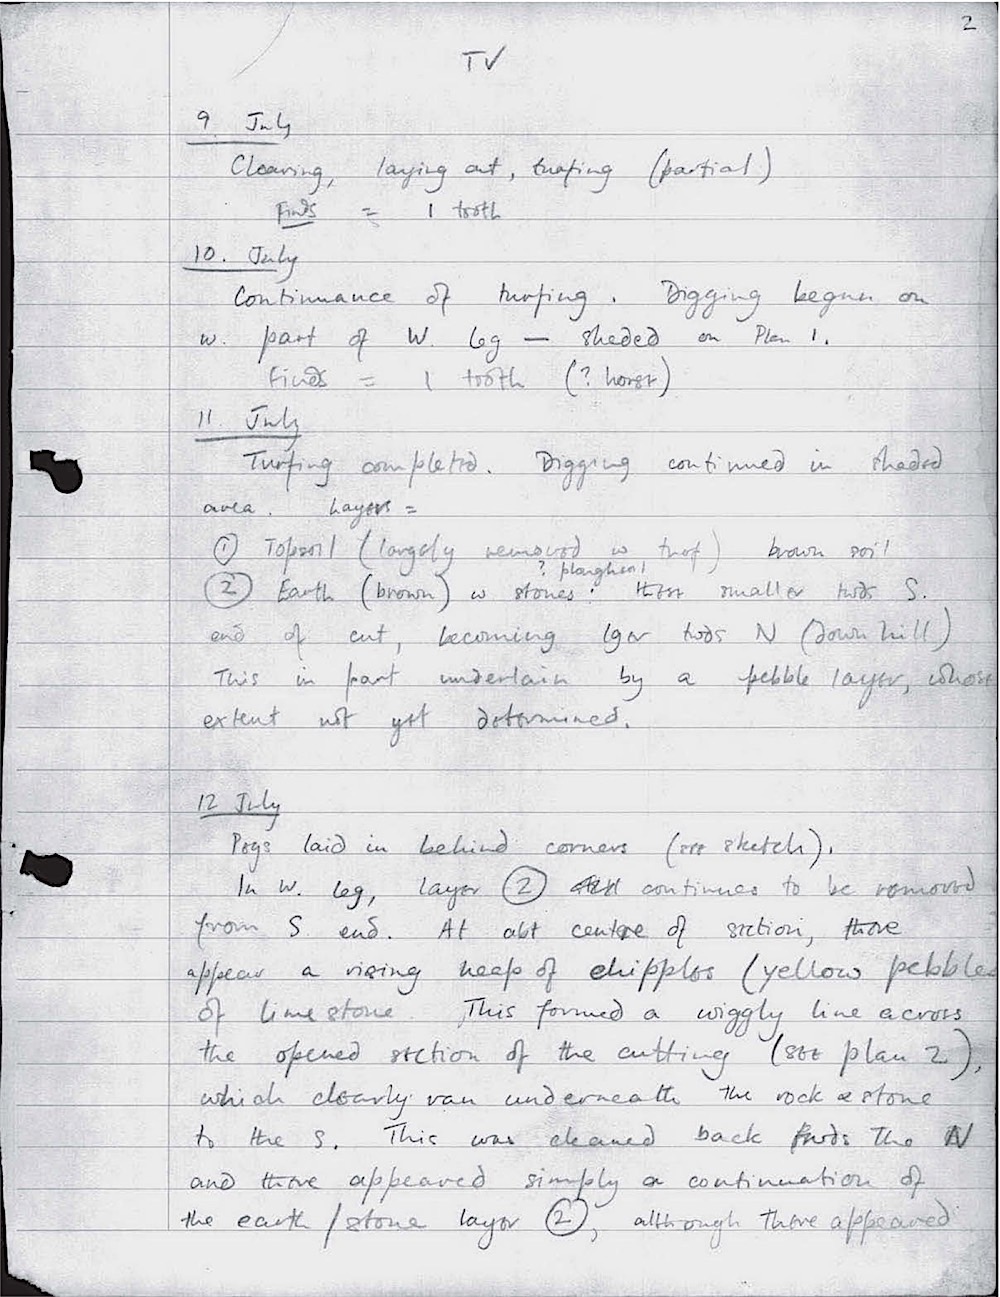 2
TV
9. July
Clearing, laying out, turfing (partial)
Finds = 1 tooth
10. July
Continuance of turfing. Digging begun on
w. part of W. leg — shaded on Plan 1.
Finds = 1 tooth (? horse)
11. July
Turfing completed. Digging continued in shaded
area. Layers =
① Topsoil (largely removed w turf) brown soil
? ploughsoil
② Earth (brown) w stones: these smaller twds S.
end of cut, becoming lger twds N (downhill)
This in part underlain by a pebble layer, whose
extent not yet determined.
12 July
Pegs laid in behind corners (see sketch).
In W. leg, layer ② continues to be removed
from S end. At abt centre of section, there
appear a rising heap of chipples (yellow pebbles
of limestone. This formed a wiggly line across
the opened section of the cutting (see plan 2),
which clearly ran underneath the rock & stone
to the S. This was cleaned back twds the N
and there appeared simply a continuation of
the earth/stone layer ②, although there appeared